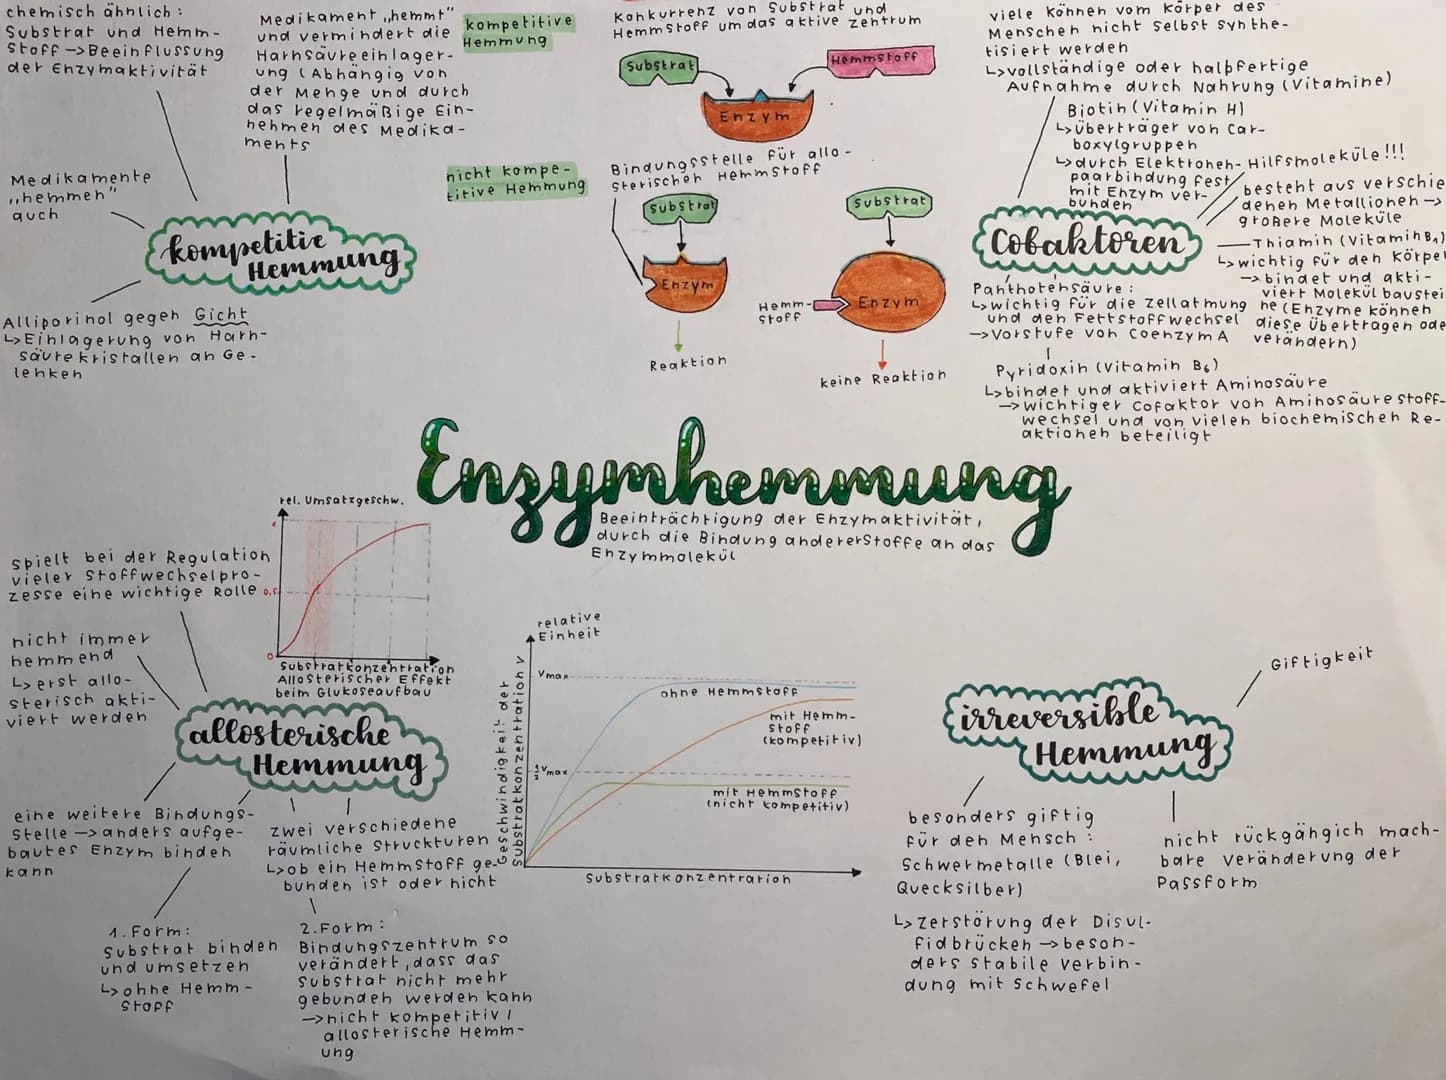 chemisch ähnlich:
Substrat und Hemm-
stoff → Beeinflussung
der Enzymaktivität
Medikament „hemmt"
und vermindert die
Harnsäureeinlager-
ung (Abhängig von
der Menge und durch
das regelmäßige Ein-
nehmen des Medika-
ments
Medikamente
„hemmen"
auch
kompetitie
Hemmung
Alliporinol gegen Gicht
↳ Einlagerung von Harn-
säurekristallen an Ge-
lenken
kompetitive
Hemmung
Konkurrenz von Substrat und
Hemmstoff um das aktive Zentrum
Substrat
Hemmstoff
Enzym
nicht kompe-
titive Hemmung
Bindungsstelle für allo-
sterischen Hemmstoff
Substrat
Enzym
Reaktion
Substrat
Hemm-
stoff
Enzym
keine Reaktion
viele können vom Körper des
Menschen nicht selbst synthe-
tisiert werden
↳ vollständige oder halbfertige
Aufnahme durch Nahrung (Vitamine)
Biotin (Vitamin H)
↳ Überträger von Car-
boxylgruppen
↳ durch Elektronen-
paarbindung fest
mit Enzym ver-
bunden
Hilfsmoleküle!!!
besteht aus verschie
denen Metallionen →
größere Moleküle
Cofaktoren
Thiamin (Vitamin B₁)
↳ wichtig für den Körper
→ bindet und akti-
viert Molekülbaustei
ne (Enzyme können
diese Übertragen ode
verändern)
Panthotensäure:
↳ wichtig für die Zellatmung
und den Fettstoffwechsel
→ Vorstufe von Coenzym A
Pyridoxin (Vitamin B₆)
↳ bindet und aktiviert Aminosäure
→ wichtiger Cofaktor von Aminosäurestoff-
wechsel und von vielen biochemischen Re-
aktionen beteiligt
Enzymhemmung
Beeinträchtigung der Enzymaktivität,
durch die Bindung anderer Stoffe an das
Enzymmolekül
rel. Umsatzgeschw.
1
0,5
0
Substratkonzentration
Allosterischer Effekt
beim Glukoseaufbau
spielt bei der Regulation
vieler Stoffwechselpro-
zesse eine wichtige Rolle
nicht immer
hemmend
↳ erst allo-
sterisch akti-
viert werden
allosterische
Hemmung
eine weitere Bindungs-
stelle → anders aufge-
bautes Enzym binden
kann
zwei verschiedene
räumliche Strukturen
↳ ob ein Hemmstoff ge-
bunden ist oder nicht
1. Form:
Substrat binden
und umsetzen
↳ ohne Hemm-
stoff
2. Form:
Bindungszentrum so
verändert, dass das
Substrat nicht mehr
gebunden werden kann
→ nicht kompetitiv/
allosterische Hemm-
ung
relative
Einheit
Geschwindigkeit der
Substratkonzentration V
Vmax
½Vmax
ohne Hemmstoff
mit Hemm-
stoff
(kompetitiv)
mit Hemmstoff
(nicht kompetitiv)
Substratkonzentration
irreversible
Hemmung
Giftigkeit
besonders giftig
für den Mensch:
Schwermetalle (Blei,
Quecksilber)
↳ Zerstörung der Disul-
fidbrücken → beson-
ders stabile Verbin-
dung mit Schwefel
nicht rückgängich mach-
bare Veränderung der
Passform